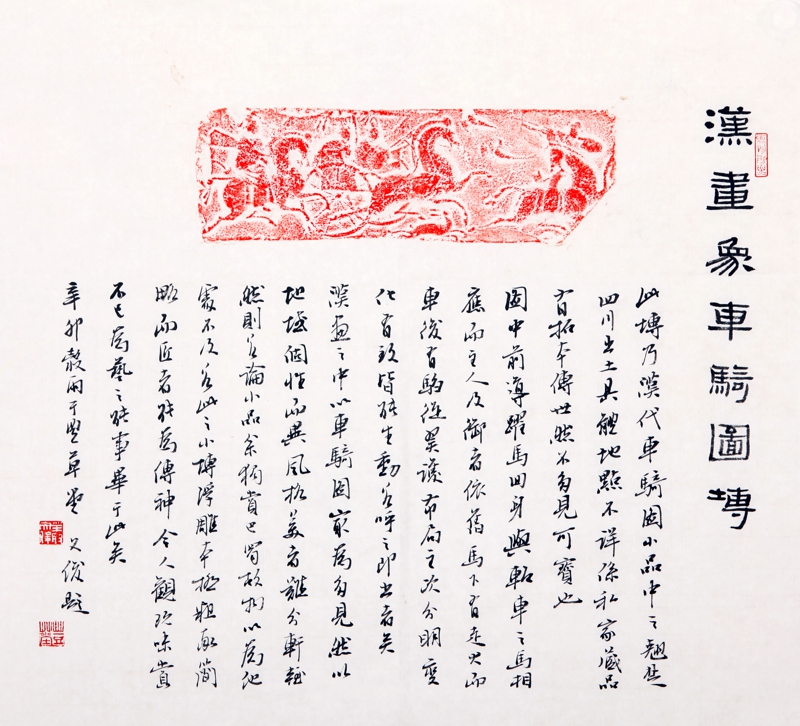 漢畫象車騎圖塼
此塼乃漢代車騎圖小品中之翹楚
四川出土具體地點不詳係私家藏品
有拓本傳世然不多見可寶也
圖中前導躍馬回身與軺車之馬相
應而主人及御者依舊馬下有走犬而
車後有從翼護布局主次分明變
化有致皆能生動若呼之即出者矣
漢畫之中以車騎圖最爲多見然以
地域個性而異風格美者難分軒輊
然則若論小品余獨賞巴蜀故物以爲他
處不及若此之小塼浮雕本極粗取簡
略而匠者能爲傳神令人觀玩味賞
不已爲藝之能事畢于此矣
辛卯穀雨于豐草堂 文俊題